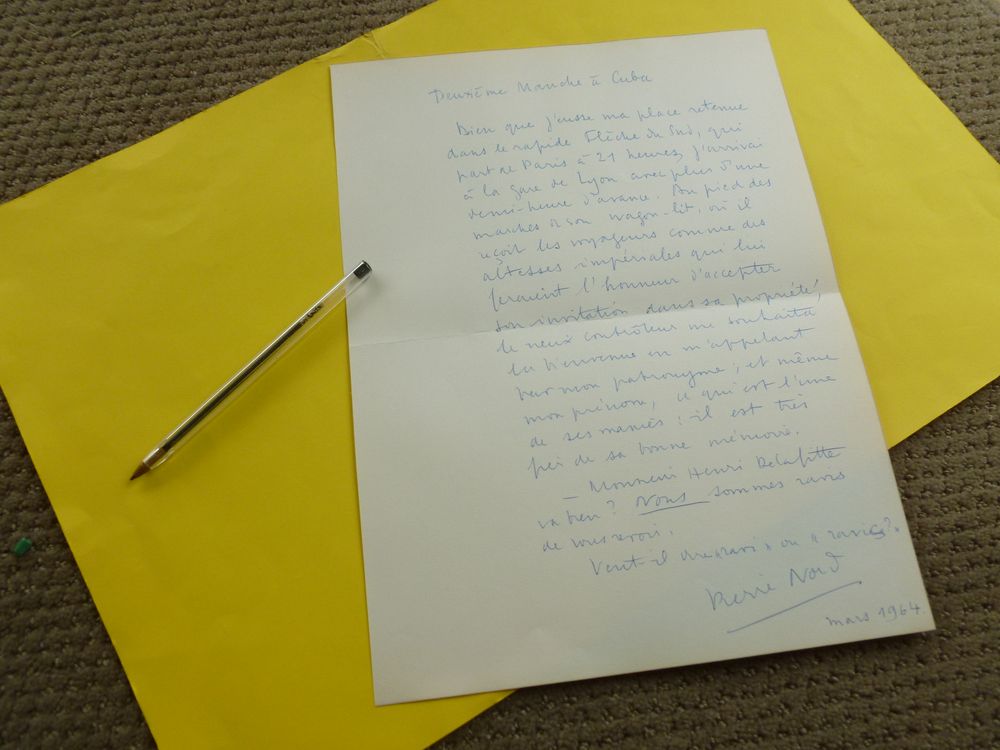 Deuxième Manche à Cuba
Bien que j'eusse ma place retenue
dans le rapide Flèche du Sud, qui
part de Paris à 21 heures, j'arrivai
à la gare de Lyon avec plus d'une
demi-heure d'avance. Au pied des
marches de son wagon-lit, où il
reçoit les voyageurs comme des
altesses impériales qui lui
feraient l'honneur d'accepter
son invitation dans sa propriété,
le vieux contrôleur me souhaita
la bienvenue en m'appelant
par mon patronyme, et même
mon prénom, ce qui est l'une
de ses manies : il est très
fier de sa bonne mémoire.
— Monsieur Henri Delafitte
va bien ? Nous sommes ravis
de vous revoir.
Veut-il dire « ravi » ou « ravies » ?
Pierre Nord
mars 1964.